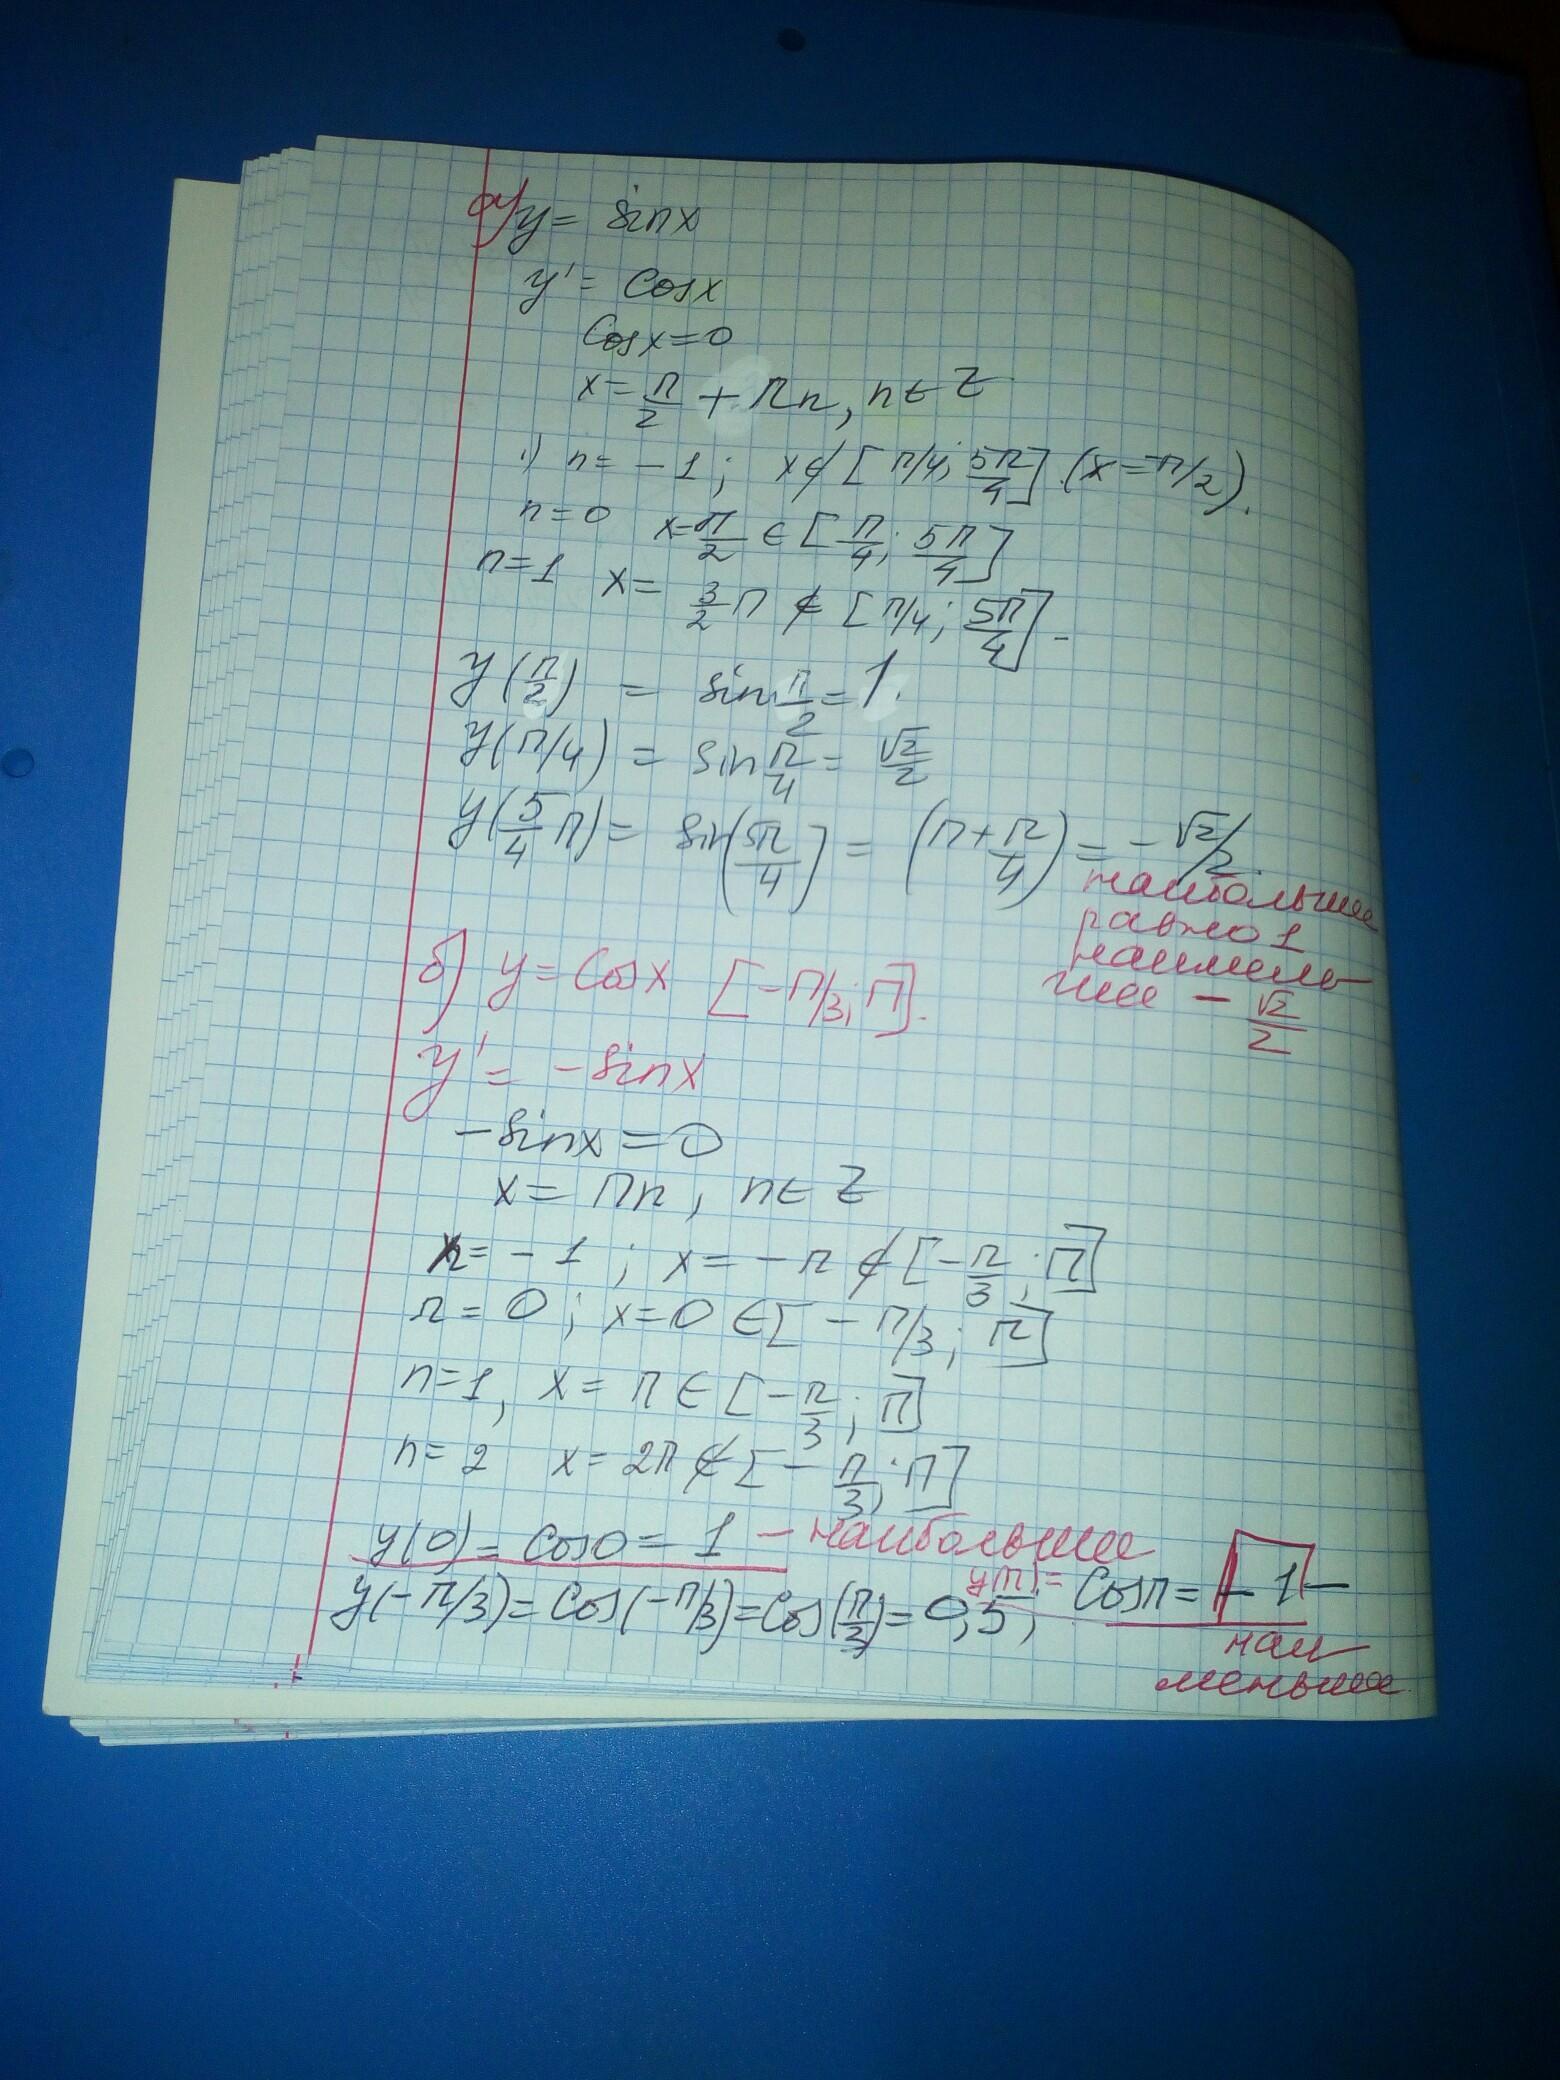 а) y = sinx
y' = cosx
cosx=0
x = π/2 + πn, n∈Z
1) n = -1; x∉[π/4; 5π/4] (x=-π/2).
n=0 x=π/2 ∈ [π/4; 5π/4]
n=1 x= 3/2 π ∉ [π/4; 5π/4].
y(π/2) = sin π/2 = 1.
y(π/4) = sin π/4 = √2/2
y(5/4 π) = sin(5π/4) = (π + π/4) = -√2/2.
наибольшее
равно 1
наимень
шее - √2/2
б) y = cosx [-π/3; π].
y' = -sinx
-sinx = 0
x = πn, n∈Z
n= -1; x = -π ∉ [-π/3; π]
n = 0; x=0 ∈[-π/3; π]
n=1, x = π ∈ [-π/3; π]
n=2 x = 2π ∉ [-π/3; π]
y(0) = cos0 = 1 - наибольшее
y(-π/3) = cos(-π/3) = cos(π/3) = 0,5; y(π) = cosπ = -1 -
наи
меньшее.